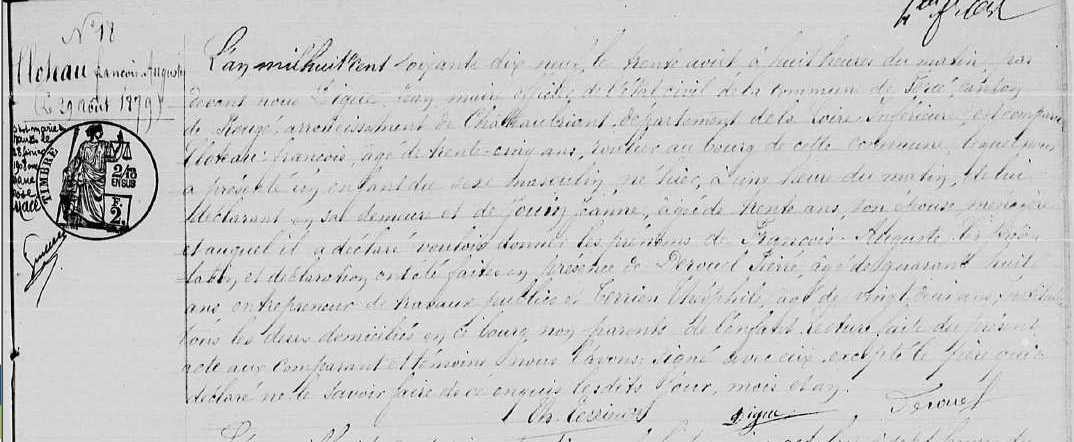 N° 18
Cloteau François Auguste
Le 29 août 1879
TIMBRE
2/10
EN SUS
F.
2.
L'an mil huit cent soixante dix neuf, le trente août à huit heures du matin, par
devant nous Ligué Jean maire officier de l'état civil de la commune de Fercé, canton
de Rougé, arrondissement de Châteaubriant, département de la Loire Inférieure, est comparu
Cloteau François, âgé de trente-cinq ans, au bourg de cette commune, lequel nous
a présenté un enfant du sexe masculin, né hier, à une heure du matin, de lui
déclarant en sa demeure et de Jouin Jeanne, âgée de trente ans, son épouse, ménagère
et auquel il a déclaré vouloir donner les prénoms de François-Auguste. les présen-
tation et déclaration ont été faites en présence de Derouet Pierre, âgé de quarante huit
ans entrepreneur de travaux publics et Terrien Théophile, âgé de vingt ans,
tous les deux domiciliés en ce bourg, non parents de l'enfant. Lecture faite du présent
acte aux comparant et témoins, nous l'avons signé avec eux, excepté le père qui a
déclaré ne le savoir faire de ce enquis lesdits jour, mois et an.
Ligué Derouet